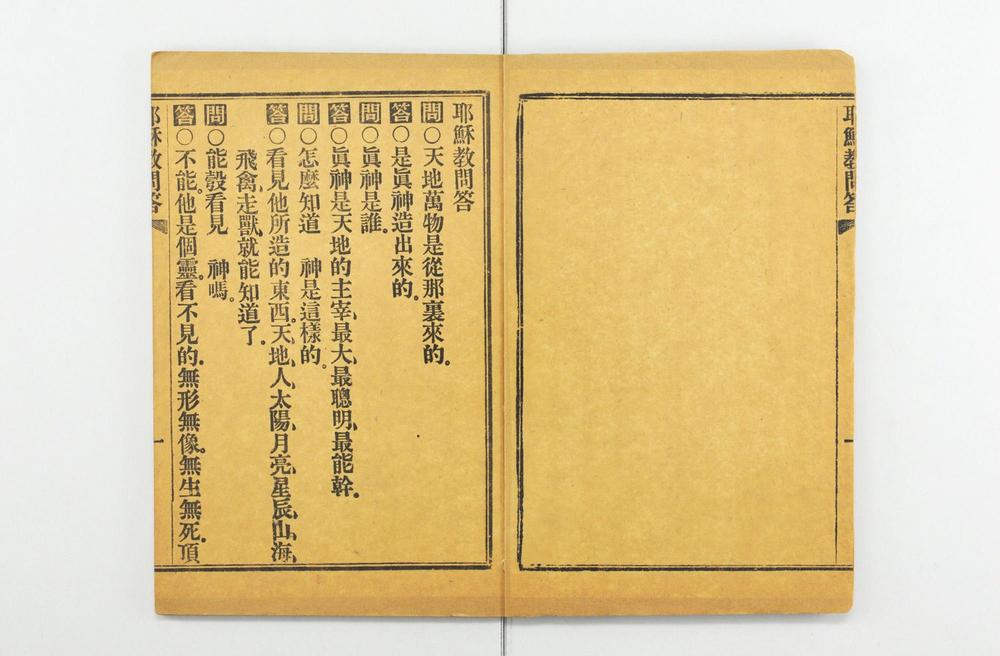 耶穌教問答
耶穌教問答
問○天地萬物是從那裏來的。
答○是眞神造出來的。
問○眞神是誰。
答○眞神是天地的主宰、最大、最聰明、最能幹。
問○怎麼知道　神是這樣的。
答○看見他所造的東西、天地、人、太陽、月亮、星辰、山、海、
飛禽、走獸、就能知道了。
問○能彀看見　神嗎。
答○不能。他是個靈。看不見的。無形無像。無生無死。頂
耶穌教問答
一
一